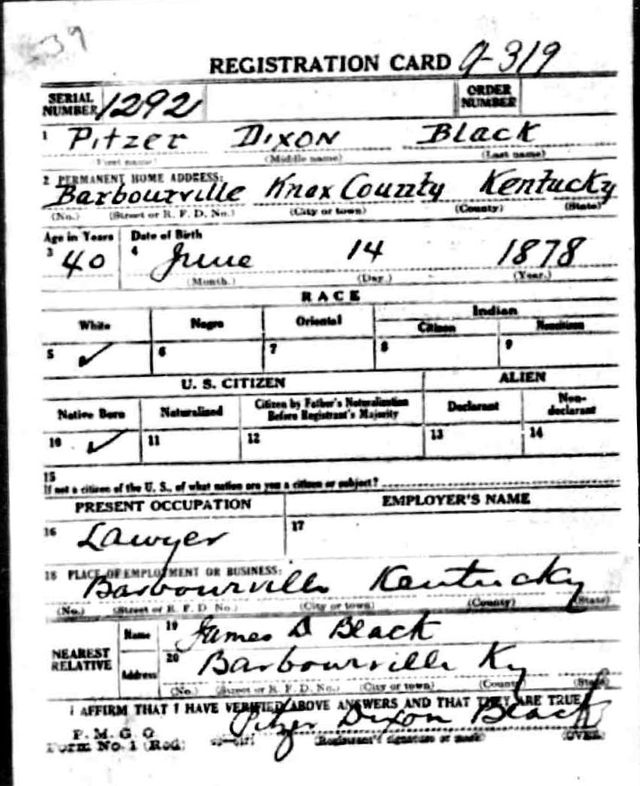 39
REGISTRATION CARD 9-319
SERIAL NUMBER 1292 ORDER NUMBER
1 Pitzer Dixon Black
(First name) (Middle name) (Last name)
2 PERMANENT HOME ADDRESS:
Barbourville Knox County Kentucky
(No.) (Street or R. F. D. No.) (City or town) (County) (State)
Age in Years Date of Birth
3 40 4 June 14 1878
(Month.) (Day.) (Year.)
RACE
White Negro Oriental Indian
Citizen Noncitizen
5 ✓ 6 7 8 9
U. S. CITIZEN ALIEN
Native Born Naturalized Citizen by Father's Naturalization Before Registrant's Majority Declarant Non-declarant
10 ✓ 11 12 13 14
15
If not a citizen of the U. S., of what nation are you a citizen or subject?
PRESENT OCCUPATION EMPLOYER'S NAME
16 Lawyer 17
18 PLACE OF EMPLOYMENT OR BUSINESS:
Barbourville Kentucky
(No.) (Street or R. F. D. No.) (City or town) (County) (State)
NEAREST RELATIVE Name 19 James D Black
Address 20 Barbourville Ky
(No.) (Street or R. F. D. No.) (City or town) (County) (State)
I AFFIRM THAT I HAVE VERIFIED ABOVE ANSWERS AND THAT THEY ARE TRUE
P. M. G. O.
Form No. 1 (Red) Pitzer Dixon Black
(Registrant's signature or mark) (OVER)